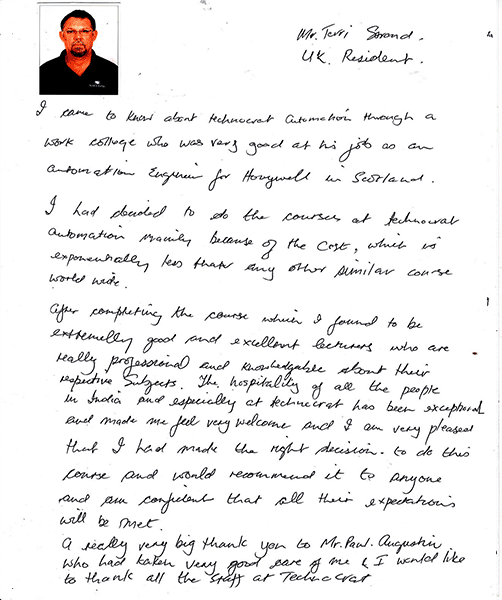 Mr. Terri Strand.
UK. Resident.
I came to know about technocrat automation through a
work college who was very good at his job as an
automation Engineer for Honeywell in Scotland.
I had decided to do the courses at technocrat
automation mainly because of the cost, which is
exponentially less that any other similar course
world wide.
After completing the course which I found to be
extremelly good and excellent lecturers who are
really professional and knowledgable about their
repective subjects. The hospitality of all the people
in India and especially at technocrat has been exceptional
and made me feel very welcome and I am very pleased
that I had made the right decision. to do this
course and would recommend it to anyone
and am confident that all their expectations
will be met.
A really very big thank you to Mr. Paul. Augustin
who had taken very good care of me & I would like
to thank all the staff at Technocrat